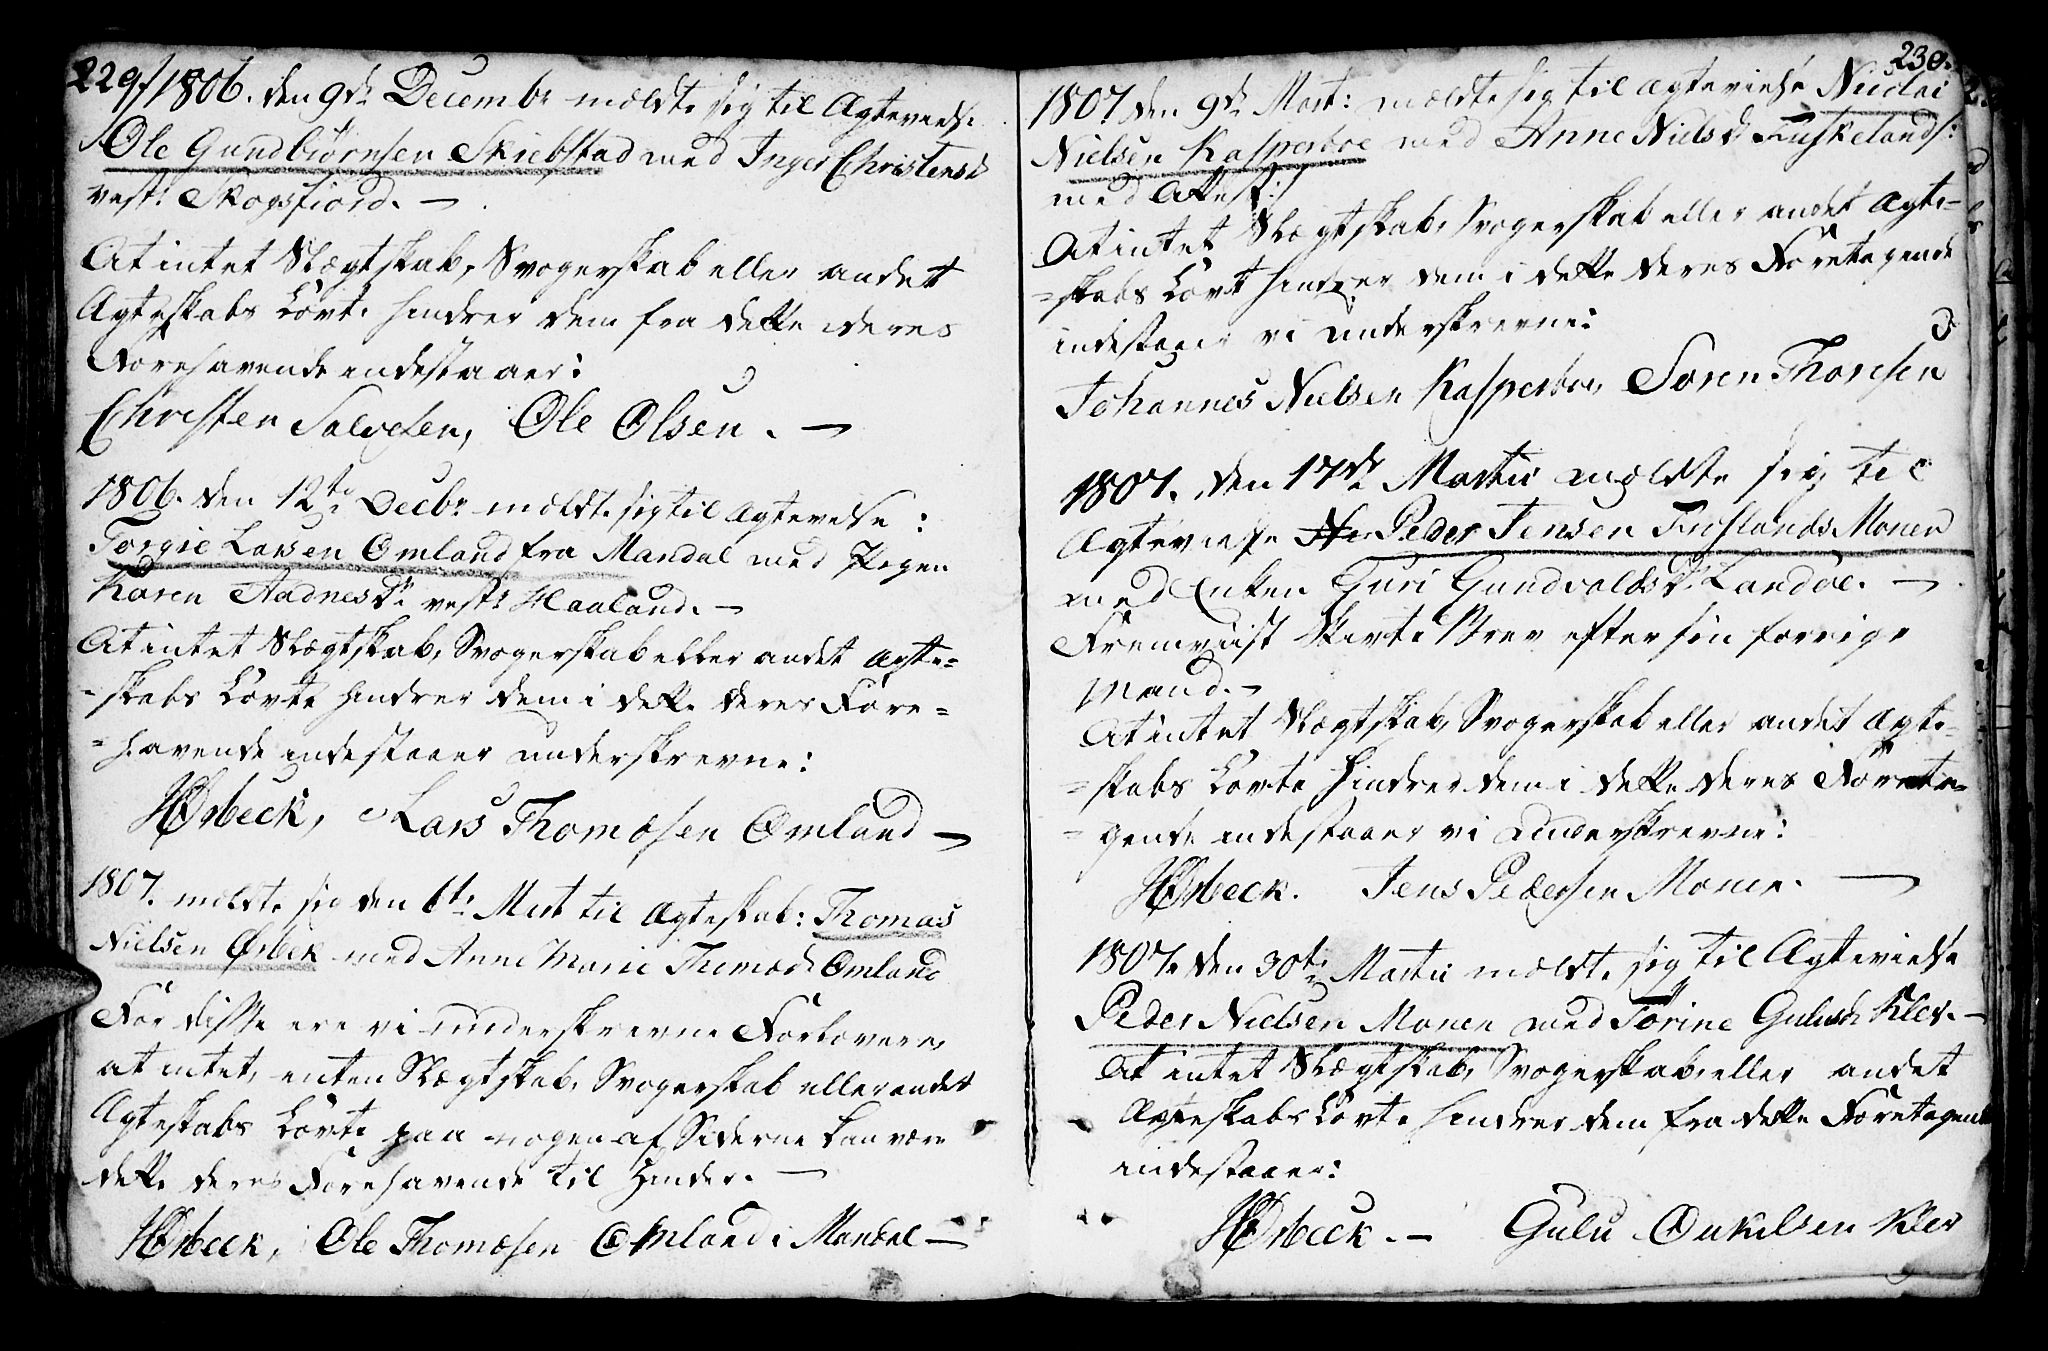 229
1806. den 9de Decembr meldte sig til Ægtevielse
Ole Gundbiörnsen Skiebstad med Inger Christensd
vest: Skogsfiord. —
At intet Slægtskab, Svogerskab eller andet
Ægteskabs Lövte hindrer dem fra dette deres
Forehavende indestaaer:
Christen Salvesen, Ole Olsen. —
1806. den 12te Decbr meldte sig til Ægtevielse:
Torgie Larsen Omland fra Mandal med Pigen
Karen Aadnesdr vestr Haaland. —
At intet Slægtskab, Svogerskab eller andet Ægte=
=skabs Lövte hindrer dem i dette deres Fore=
=havende indestaaer underskrevne:
HØrbeck, Lars Thomæsen Omland —
1807. meldte sig den 6te Mart til Ægteskab: Thomas
Nielsen Ørbek med Anne Marie Thomæd Omland
For disse ere vi underskrevne Forlovere,
at intet, enten Slægtskab, Svogerskab eller andet
Ægteskabs Lövte paa nogen af Siderne kan være
dette deres Forehavende til Hinder. —
HØrbeck, Ole Thomæsen Omland i Mandal —
230.
1807 den 9de Mart: meldte sig til Ægtevielse Nicolai
Nielsen Kasperboe med Anne Nielsd Fuskeland /:
med Attest :/
At intet Slægtskab, Svogerskab eller andet Ægte=
=skabs Lövte hindrer dem i dette deres Foretagende
indestaaer vi underskrevne:
Johannes Nielsen Kasperboe, Soren Thoresen
1807. den 17de Martii meldte sig til
Ægtevielse Peder Jensen Fuslands Monen
med Enken Guri Gundvaldsdr Landöe. —
Fremviist Skivte Brev efter sin forrige
Mand. —
At intet Slægtskab, Svogerskab eller andet Ægte=
=skabs Lövte hindrer dem i dette deres Foreta=
=gende indestaaer vi Underskrevne:
HØrbeck. Jens Pedersen Monen. —
1807. den 30te Martii meldte sig til Ægtevielse
Peder Nielsen Monen med Torine Gulusdr Klev. —
At intet Slægtskab, Svogerskab, eller andet
Ægteskabs Lövte hindrer dem fra dette Foretagende
indestaaer:
HØrbeck. — Gulu Onkilsen Klev